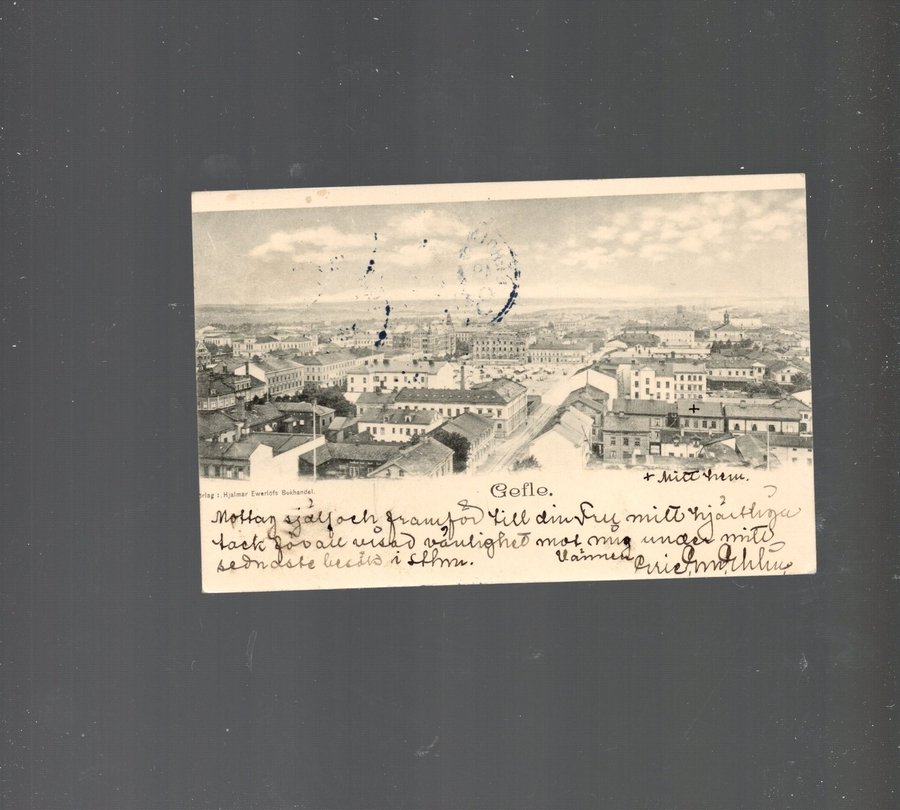 +
+ Mitt hem.
Förlag: Hjalmar Ewerlöfs Bokhandel.
Gefle.
Mottag själf och framför till din Fru mitt hjärtliga
tack för all visad vänlighet mot mig under mitt
sednaste besök i Sthm. Vännen